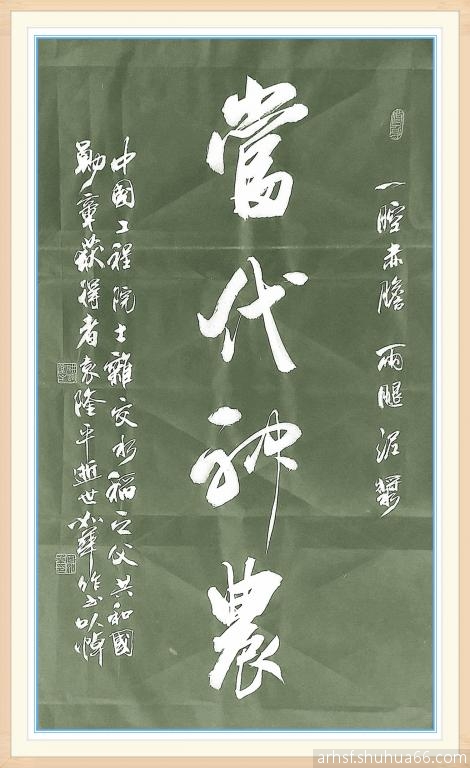 一腔赤膽 兩腿泥漿
當代神農
中國工程院士雜交水稻之父共和國
勛章獲得者袁隆平逝世華作書以悼
arhsf.shuhua66.com